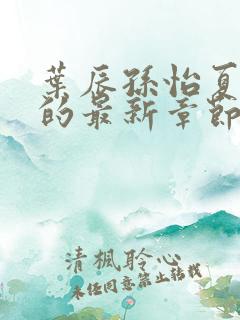 葉辰孫怡夏
的最新章節
清楓聆心
未任同意禁止转载